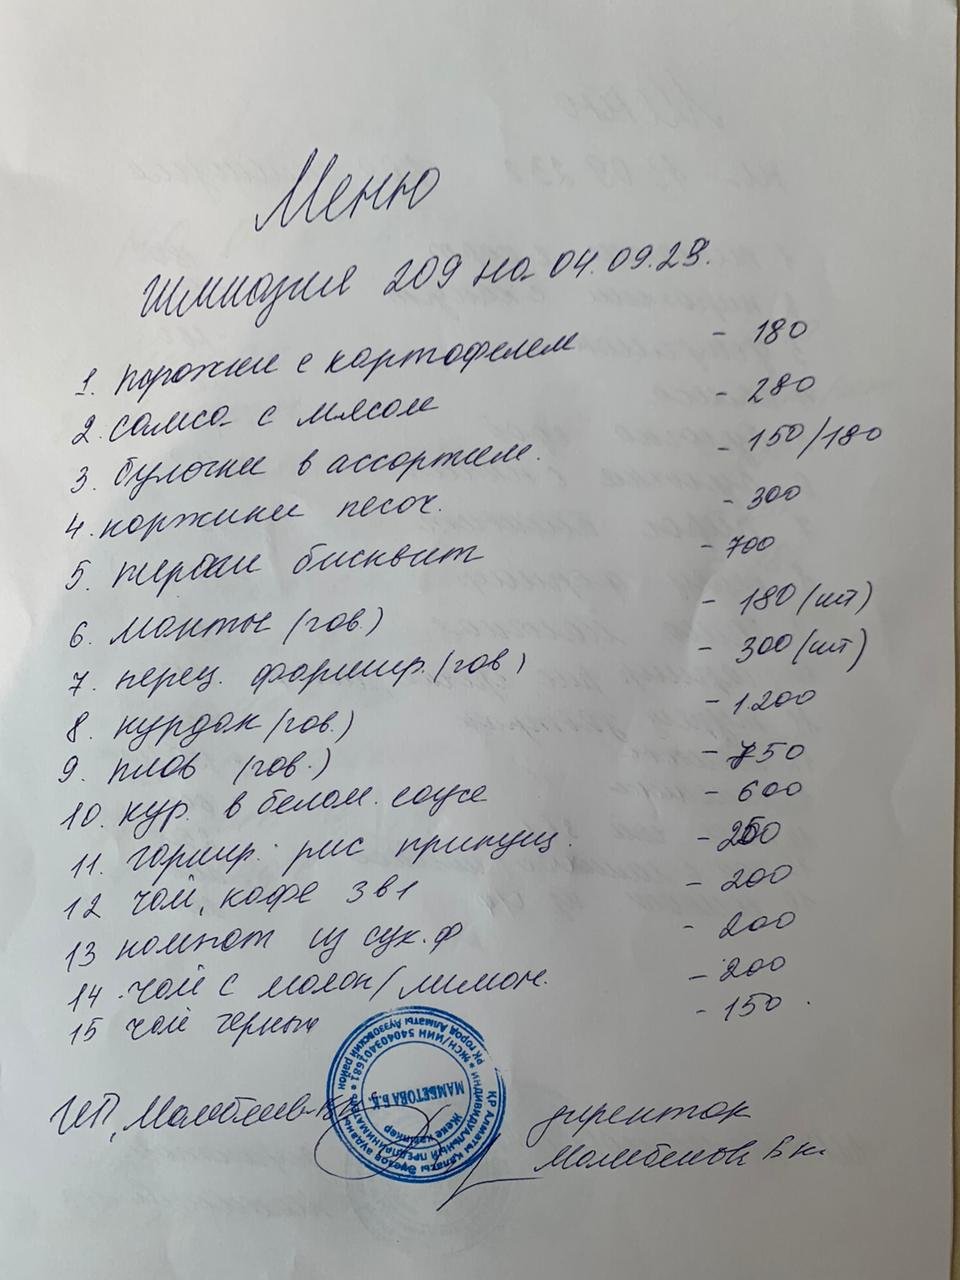 Меню
Гимназия 209 на 04.09.23.
1. пирожки с картофелем - 180
2. самса с мясом - 280
3. булочки в ассортим. - 150/180
4. коржики песоч. - 300
5. бисквит - 700
6. манты (гов.) - 180 (шт)
7. перец. фаршир. (гов) - 300 (шт)
8. курдак (гов.) - 1.200
9. плов (гов.) - 750
10. кур. в белом. соусе - 600
11. гарнир. рис припущ. - 200
12 чай, кофе 3в1 - 200
13 компот из сух.ф - 200
14. чай с молок/лимон. - 200
15 чай черный - 150
ИП, Мамбетова
директор
Мамбетова Б К.
ҚР Алматы қаласы Әуезов ауданы
РК город Алматы Ауэзовский район
ЖСН/ИИН 540403401681
Жеке кәсіпкер
МАМБЕТОВА Б.К.
ИНДИВИДУАЛЬНЫЙ ПРЕДПРИНИМАТЕЛЬ